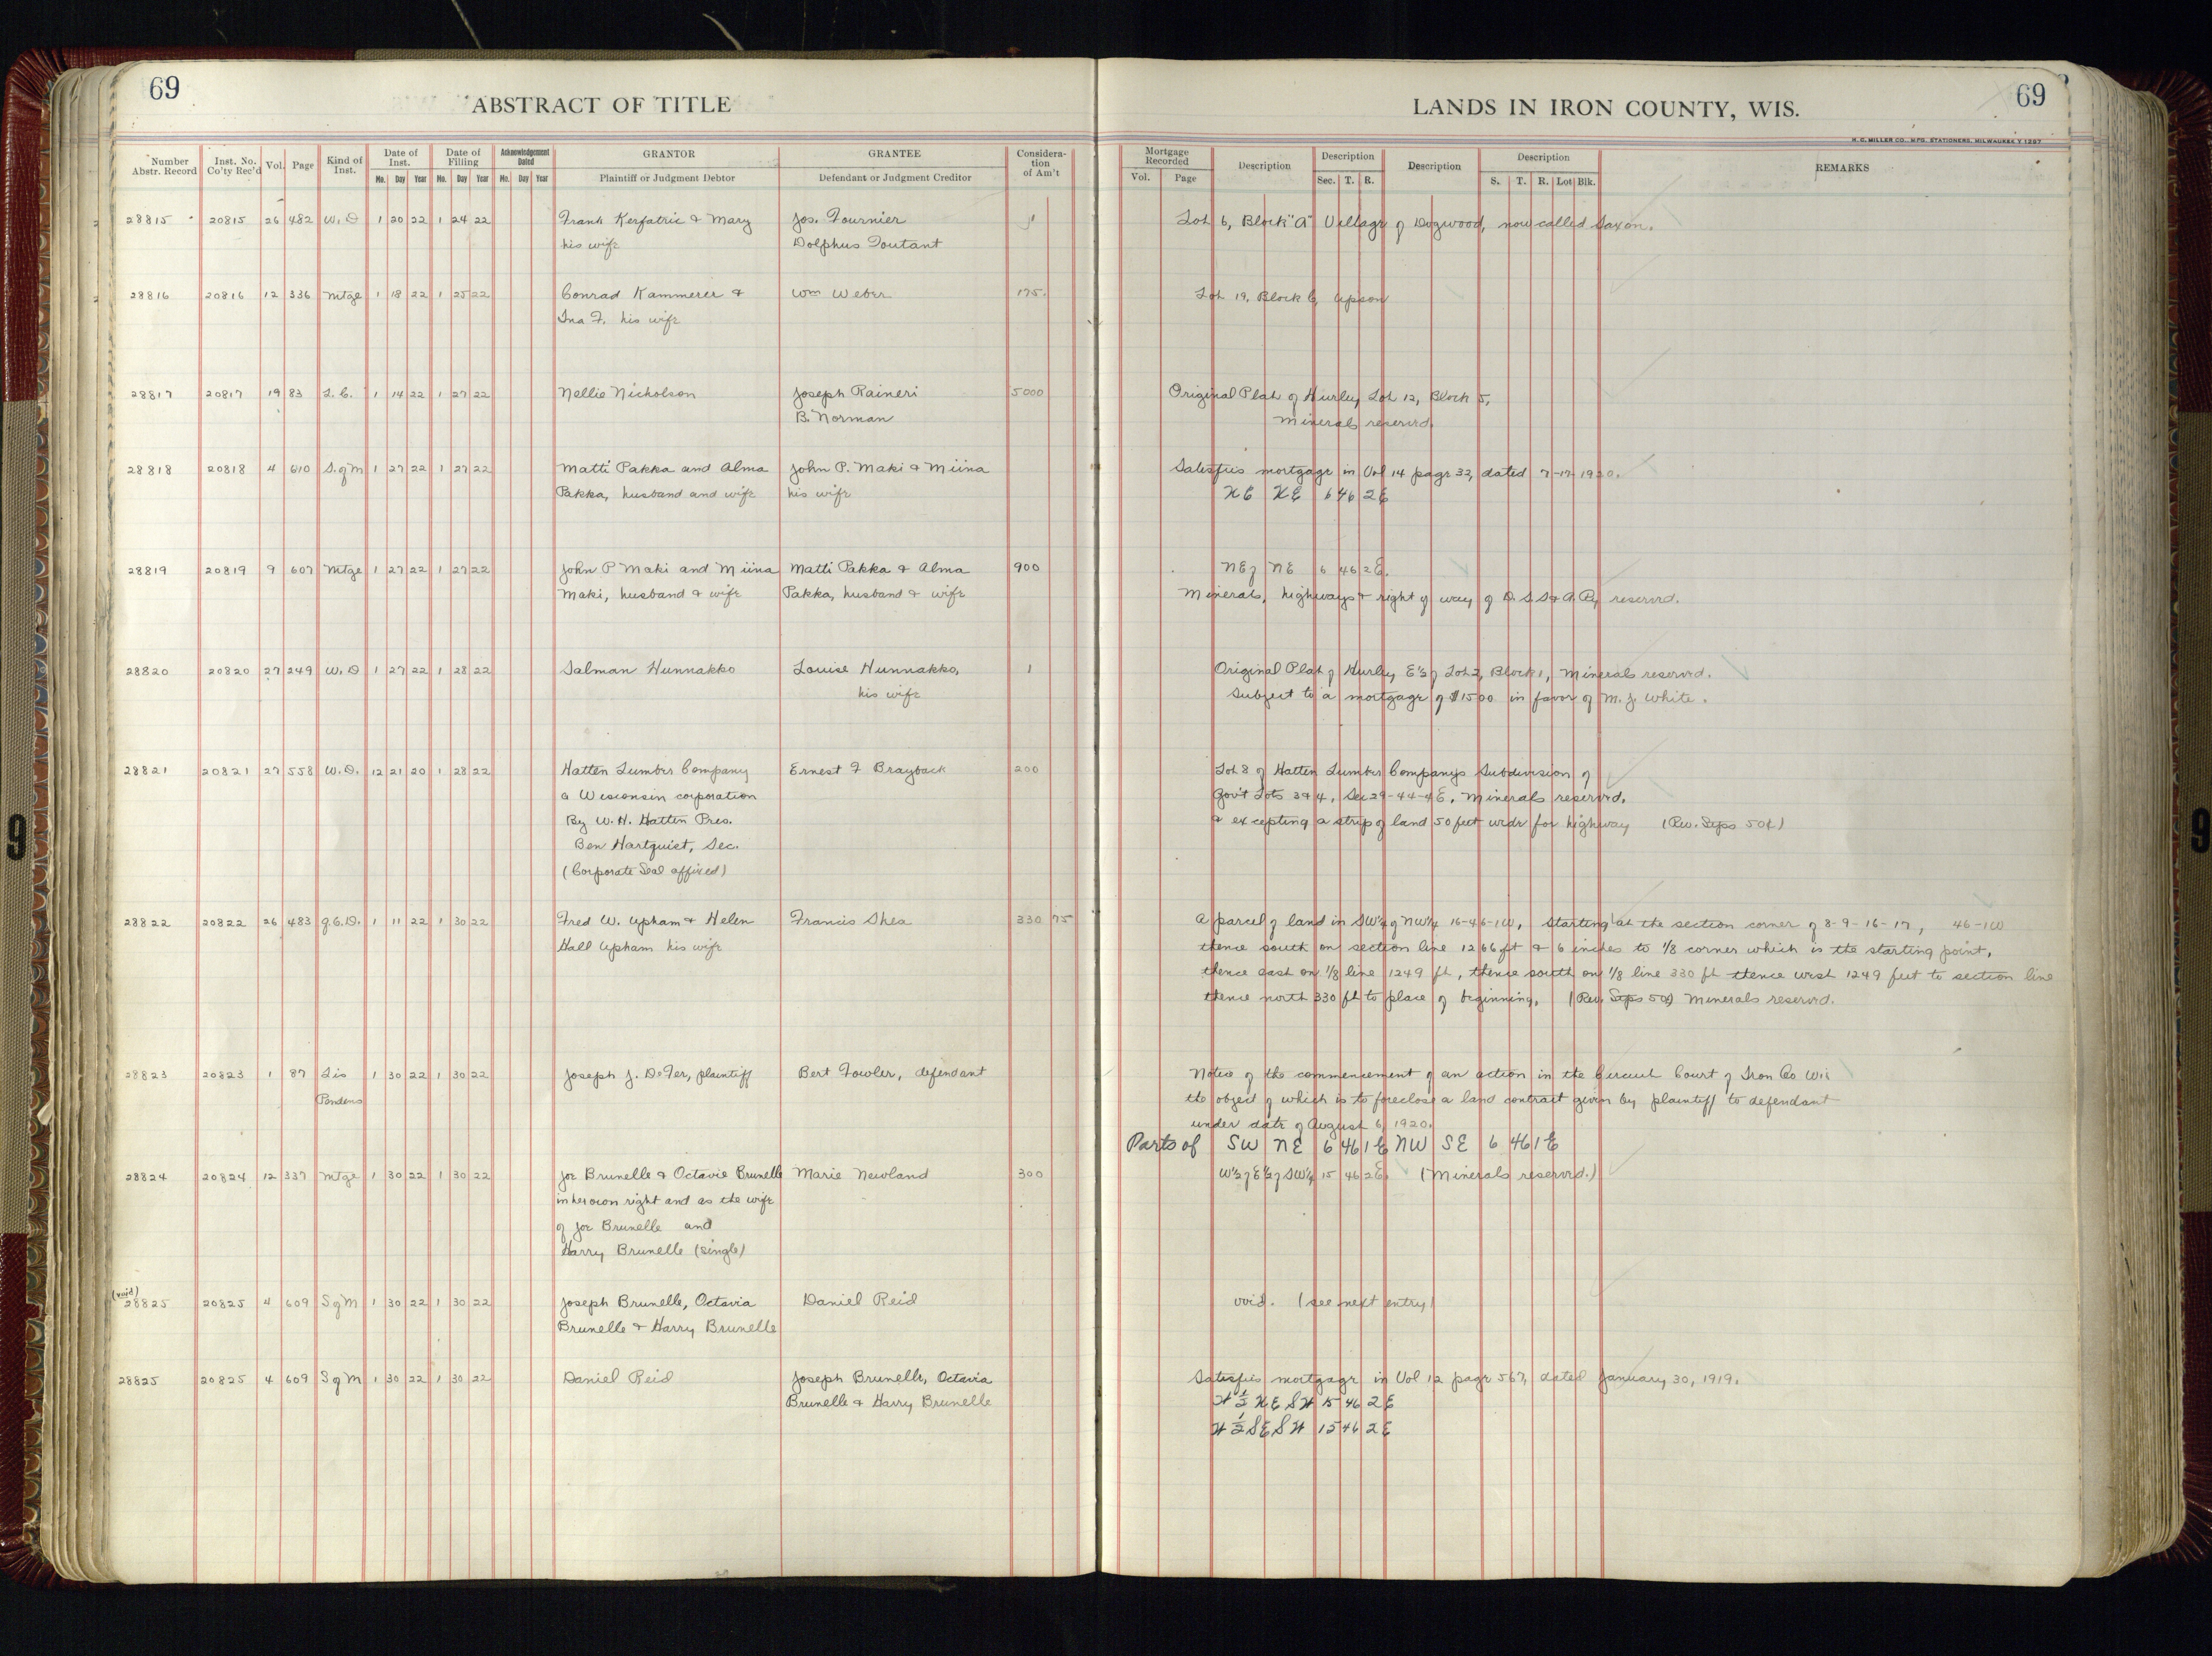 69
ABSTRACT OF TITLE
LANDS IN IRON COUNTY, WIS.
69
H. C. MILLER CO., MFG. STATIONERS, MILWAUKEE
Number Abstr. Record Inst. No. Co'ty Rec'd Vol. Page Kind of Inst. Date of Inst. Mo. Day Year Date of Filling Mo. Day Year Acknowledgement Dated Mo. Day Year GRANTOR Plaintiff or Judgment Debtor GRANTEE Defendant or Judgment Creditor Considera- tion of Am't Mortgage Recorded Vol. Page Description Description Sec. T. R. Description Description S. T. R. Lot Blk. REMARKS
28815 20815 26 482 W. D 1 20 22 1 24 22 Frank Kerfatric & Mary Jos. Fournier 1 Lot 6, Block "A" Village of Dogwood, now called Saxon.
his wife Dolphus Toutant
28816 20816 12 336 Mtge 1 18 22 1 25 22 Conrad Kammerer & Wm Weber 175. Lot 19, Block 6, Upson
Ina F. his wife
28817 20817 19 83 L. C. 1 14 22 1 27 22 Nellie Nicholson Joseph Raineri 5000 Original Plat of Hurley, Lot 12, Block 5,
B. Norman Minerals reserved.
28818 20818 4 610 S. of M 1 27 22 1 27 22 Matti Pakka and Alma John P. Maki & Miina Satisfies mortgage in Vol 14 page 32, dated 7-17-1920.
Pakka, husband and wife his wife NE NE 6 46 2E
28819 20819 9 607 Mtge 1 27 22 1 27 22 John P Maki and Miina Matti Pakka & Alma 900 NE of NE 6 46 2E.
Maki, husband & wife Pakka, husband & wife Minerals, highways & right of way of D. S. S & A. Ry reserved.
28820 20820 27 249 W. D 1 27 22 1 28 22 Salman Hunnakko Louise Hunnakko, 1 Original Plat of Hurley, E½ of Lot 2, Block 1, Minerals reserved.
his wife Subject to a mortgage of $1500 in favor of M. J. White.
28821 20821 27 558 W. D. 12 21 20 1 28 22 Hatten Lumber Company Ernest F Brayback 200 Lot 8 of Hatten Lumber Company's Subdivision of
a Wisconsin corporation Gov't Lots 3 & 4, Sec 29-44-4E, Minerals reserved,
By W. H. Hatten Pres. & excepting a strip of land 50 feet wide for highway (Rev. Stps 50¢)
Ben Hartquist, Sec.
(Corporate Seal affixed)
28822 20822 26 483 Q.C.D. 1 11 22 1 30 22 Fred W. Upham & Helen Francis Shea 330 75 A parcel of land in SW¼ of NW¼ 16-46-1W, Starting at the section corner of 8-9-16-17, 46-1W
Hall Upham his wife thence south on section line 1266 ft & 6 inches to 1/8 corner which is the starting point,
thence east on 1/8 line 1249 ft, thence south on 1/8 line 330 ft thence west 1249 feet to section line
thence north 330 ft to place of beginning. (Rev. Stps 50¢) Minerals reserved.
28823 20823 1 87 Lis 1 30 22 1 30 22 Joseph J. DeFer, plaintiff Bert Fowler, defendant Notice of the commencement of an action in the Circuit Court of Iron Co Wis
Pendens the object of which is to foreclose a land contract given by plaintiff to defendant
under date of August 6, 1920.
Parts of SW NE 6 46 1E NW SE 6 46 1E
28824 20824 12 337 Mtge 1 30 22 1 30 22 Joe Brunelle & Octavie Brunelle Marie Newland 300 W½ of E½ of SW¼ 15 46 2E. (Minerals reserved.)
in her own right and as the wife
of Joe Brunelle and
Harry Brunelle (single)
(void)
28825 20825 4 609 S of M 1 30 22 1 30 22 Joseph Brunelle, Octavia Daniel Reid void. (see next entry)
Brunelle & Harry Brunelle
28825 20825 4 609 S of M 1 30 22 1 30 22 Daniel Reid Joseph Brunelle, Octavia Satisfies mortgage in Vol 12 page 567, dated January 30, 1919.
Brunelle & Harry Brunelle W½ NE SW 15 46 2E
W½ SE SW 15 46 2E
9
9